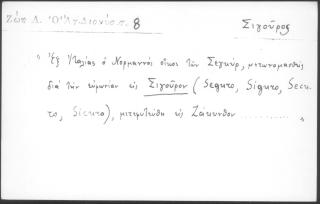 Ζώη Λ. Ὁ 8
Σιγοῦρος
" Ἐξ Ἰταλίας ὁ Νορμαννὸς οἶκος τῶν Σεγκύρ, μετωνομασθεὶς
διὰ τὴν εὐφωνίαν εἰς Σιγοῦρον (Seguro, Siguro, Secu-
ro, Sicuro), μετεφυτεύθη εἰς Ζάκυνθον .......... "